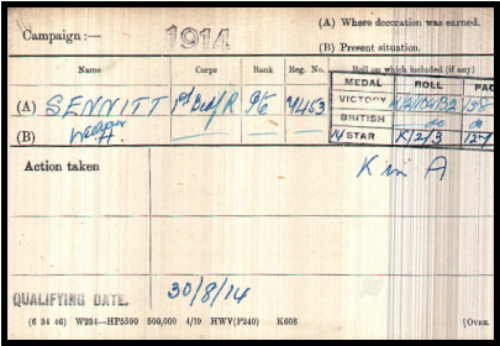 (A) Where decoration was earned.
Campaign :— 1914
(B) Present situation.
Name Corps Rank Reg. No. Roll on which included (if any)
MEDAL ROLL PAG
(A) SENNITT 1st Bedf R Pte 7453 VICTORY K/2/104B2 158
(B) BRITISH do do
14 STAR K/2/3 127
Action taken K in A
QUALIFYING DATE. 30/8/14
(6 34 46) W234—HP5590 500,000 4/19 HWV(P240) K608 (Over.